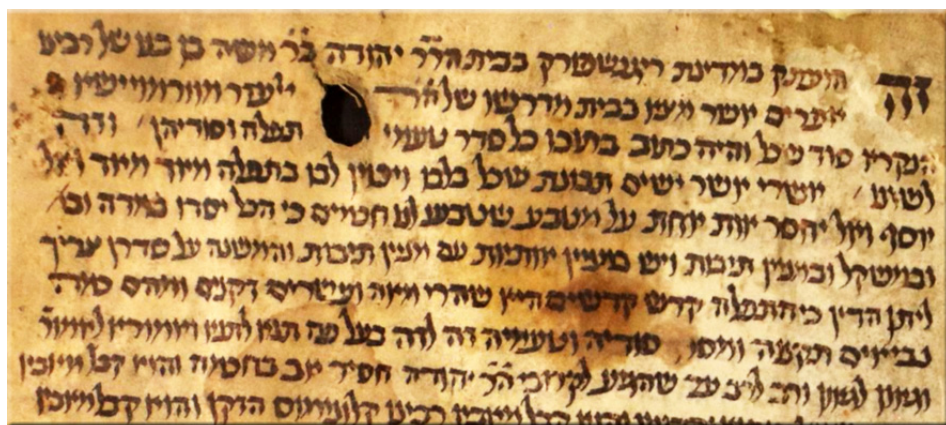 זה הועתק במדינת ריגנשפורק בבית הר״ר יהודה בר׳ משה בן בנו של רבינו
אפרים יושר מצאו בבית מדרשו של הר״ר אלעזר מוורמיישא
הנקרא סוד שכל והיה כתוב בתוכו כל סדר טעמי תפלה וסודיהן וזה
לשונו יושרי יושר ישים תבונת שכל בלבו ויכוין לבו בתפלה מאוד מאוד ואל
יוסף ואל יחסר אות אחת על מטבע שטבעו חכמים כי הכל יסדו במדה
ובמשקל ובמניין תיבות ויש מניין אותיות עם מניין תיבות והמשנה על סדרן עריך
ליתן הדין כי התפלה קדש קדשים היא שהרי מאה ועשרים זקנים ומהם כמה
נביאים תקנוה ומסרו סודיה וטעמיה זה לזה בעל פה תנא לתנא ואמורא לאמורא
וגאון לגאון ורב לרב עד שהגיע לקרובי הר״ר יהודה חסיד אב בחכמה והוא קבל מאביו
רבינו קלונימוס הזקן והוא קבל מאביו